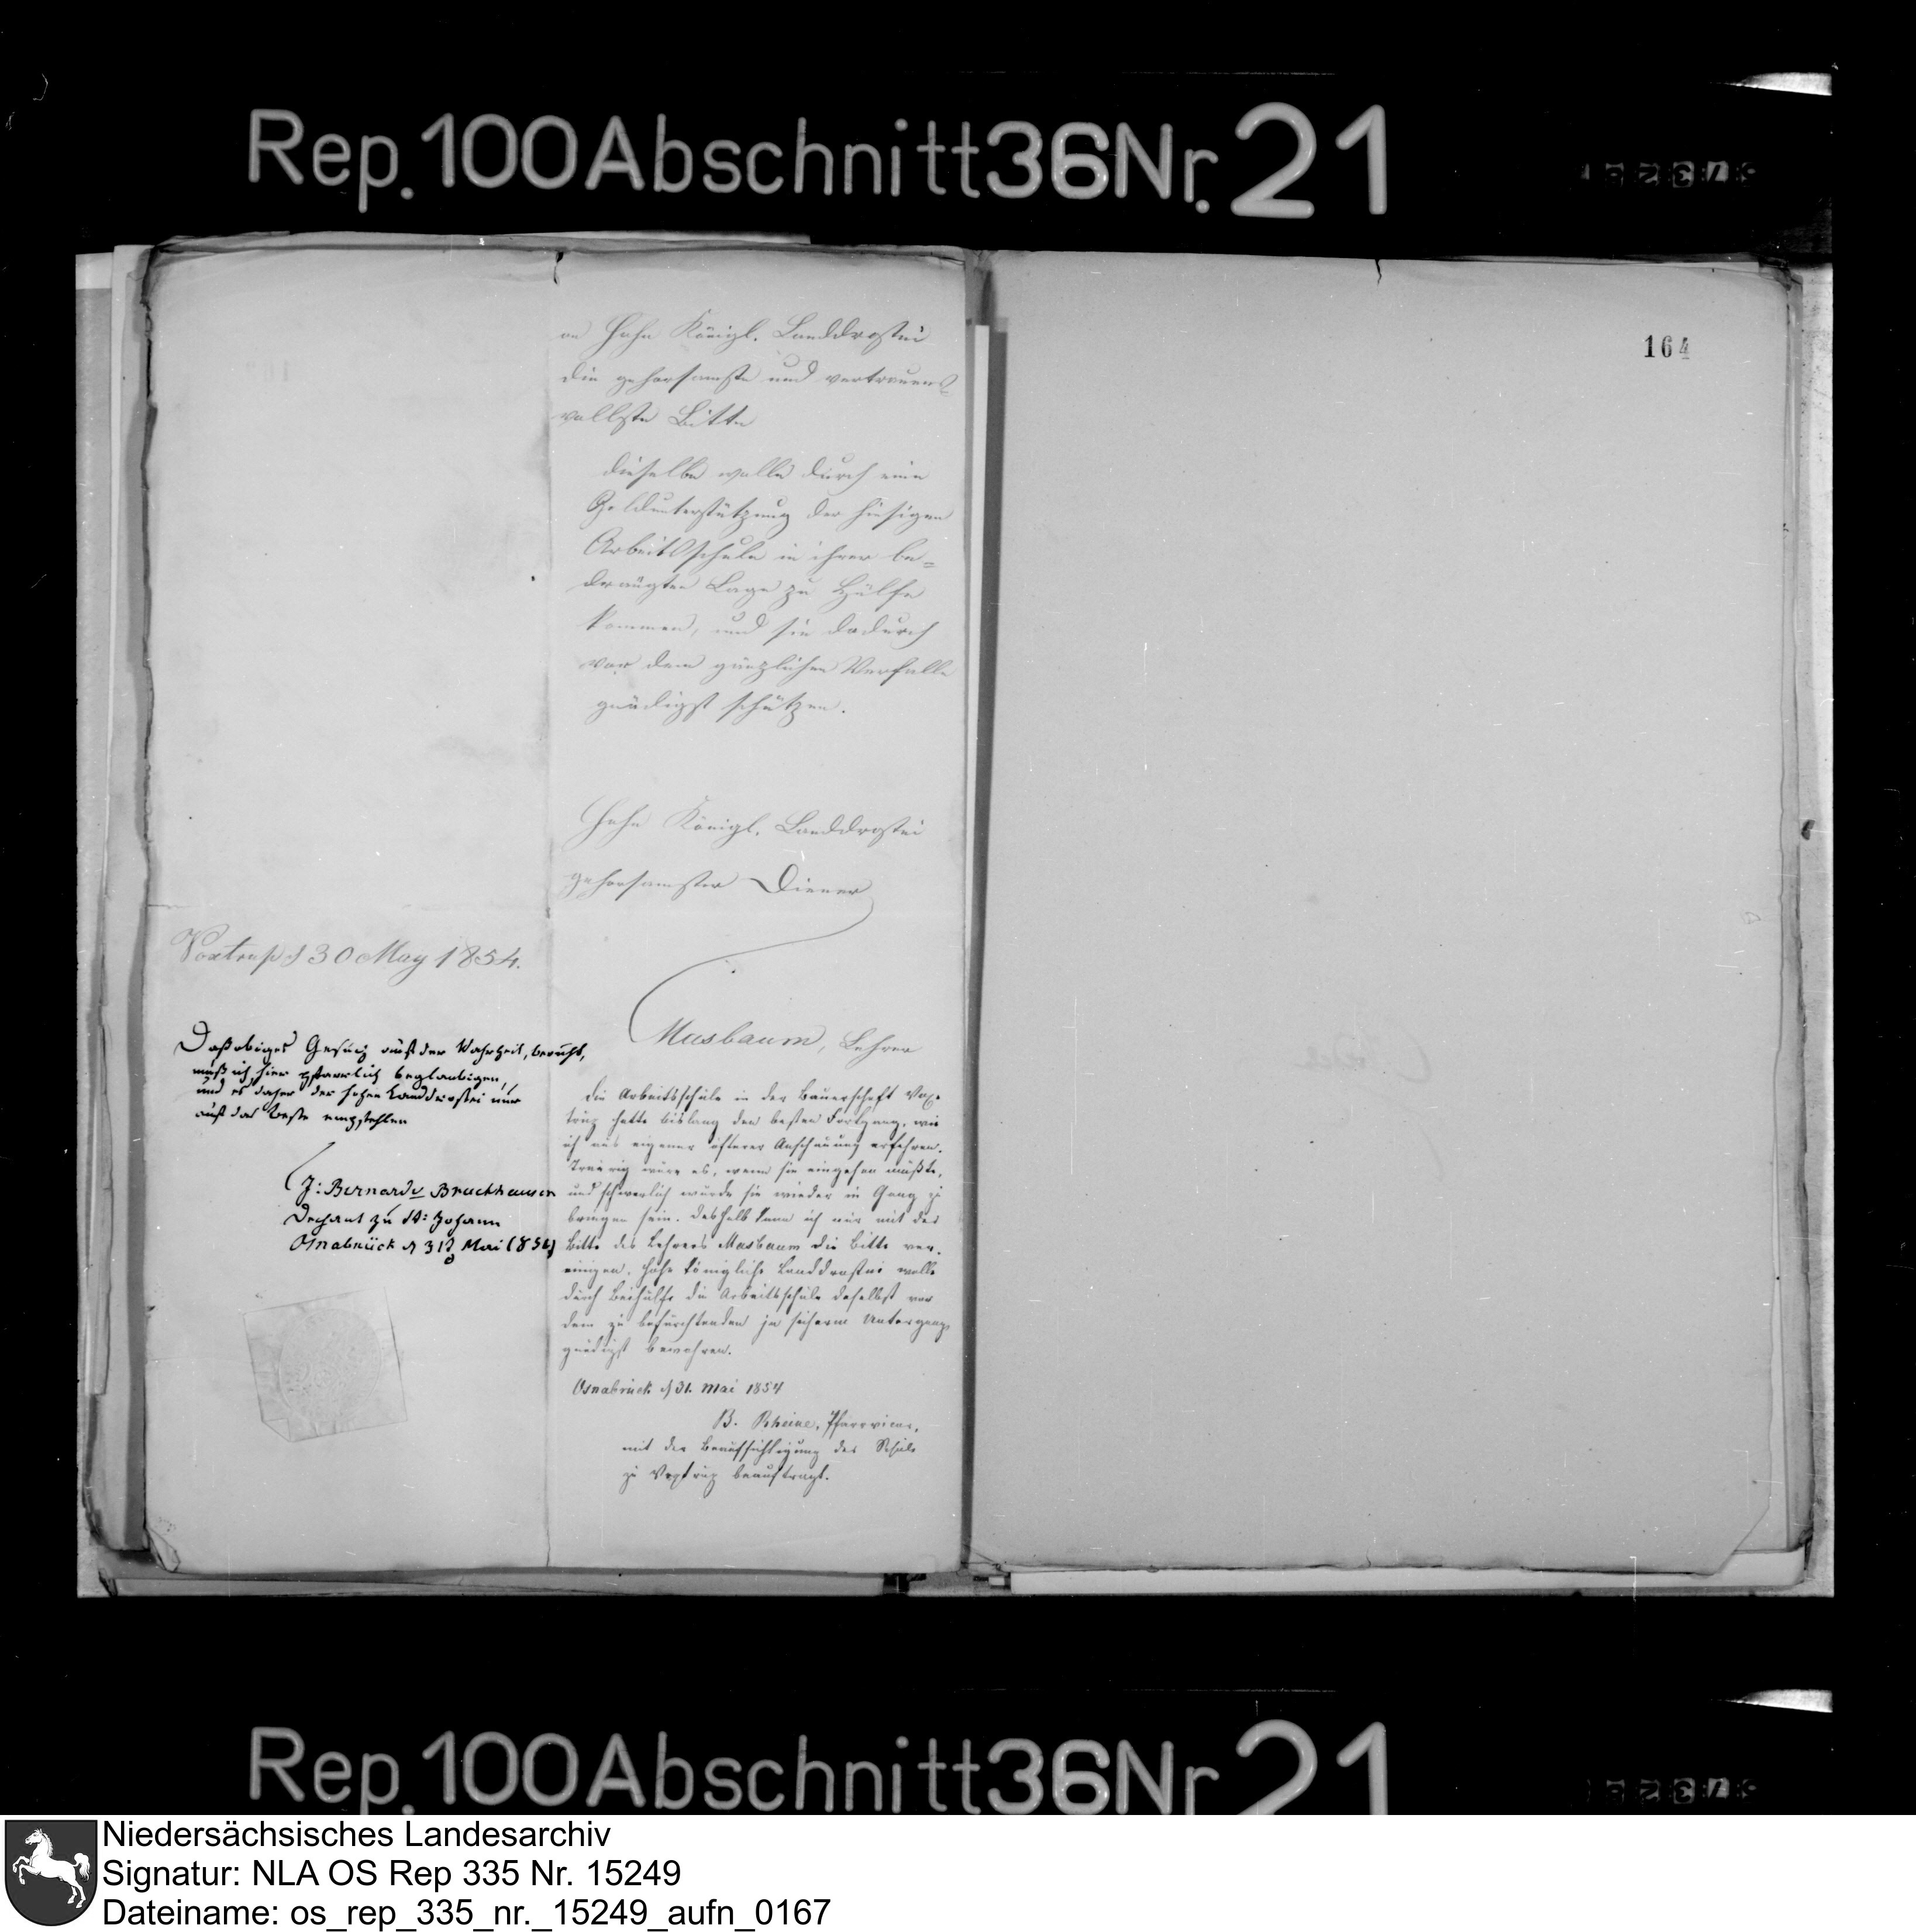 Rep. 100 Abschnitt 36 Nr. 21
164
an Hohe Königl. Landdrostei
die gehorsamste und vertrauens-
vollste Bitte
dieselbe wolle durch eine
Geldunterstützung der hiesigen
Arbeitsschule in ihrer be=
drängten Lage zu Hülfe
kommen, und sie dadurch
vor dem gänzlichen Verfalle
gnädigst schützen.
Hohe Königl. Landdrostei
gehorsamster Diener
Voxtrup d 30 May 1854.
Masbaum, Lehrer
Daß obiges Gesuch auf der Wahrheit beruht,
muß ich hier pfarrlich beglaubigen,
und es daher der hohen Landdrostei nur
auf das Beste empfehlen
J: Bernard Bruckhausen
Dechant zu St: Johann
Osnabrück d 31 Mai 1854
Die Arbeitsschule in der Bauerschaft Vox-
trup hatte bislang den besten Fortgang, wie
ich aus eigener öfterer Anschauung erfahren.
Traurig wäre es, wenn sie eingehen müßte,
und schwerlich würde sie wieder in Gang zu
bringen sein. Deshalb kann ich nur mit der
Bitte des Lehrers Masbaum die Bitte ver-
einigen, Hohe Königliche Landdrostei wolle
durch Beihülfe die Arbeitsschule daselbst vor
dem zu befürchtenden ja sicherm Untergange
gnädigst bewahren.
Osnabrück d 31. Mai 1854
B. Rheine, Pfarrvicar,
mit der Beaufsichtigung der Schule
zu Voxtrup beauftragt.
Rep. 100 Abschnitt 36 Nr. 21
Niedersächsisches Landesarchiv
Signatur: NLA OS Rep 335 Nr. 15249
Dateiname: os_rep_335_nr._15249_aufn_0167